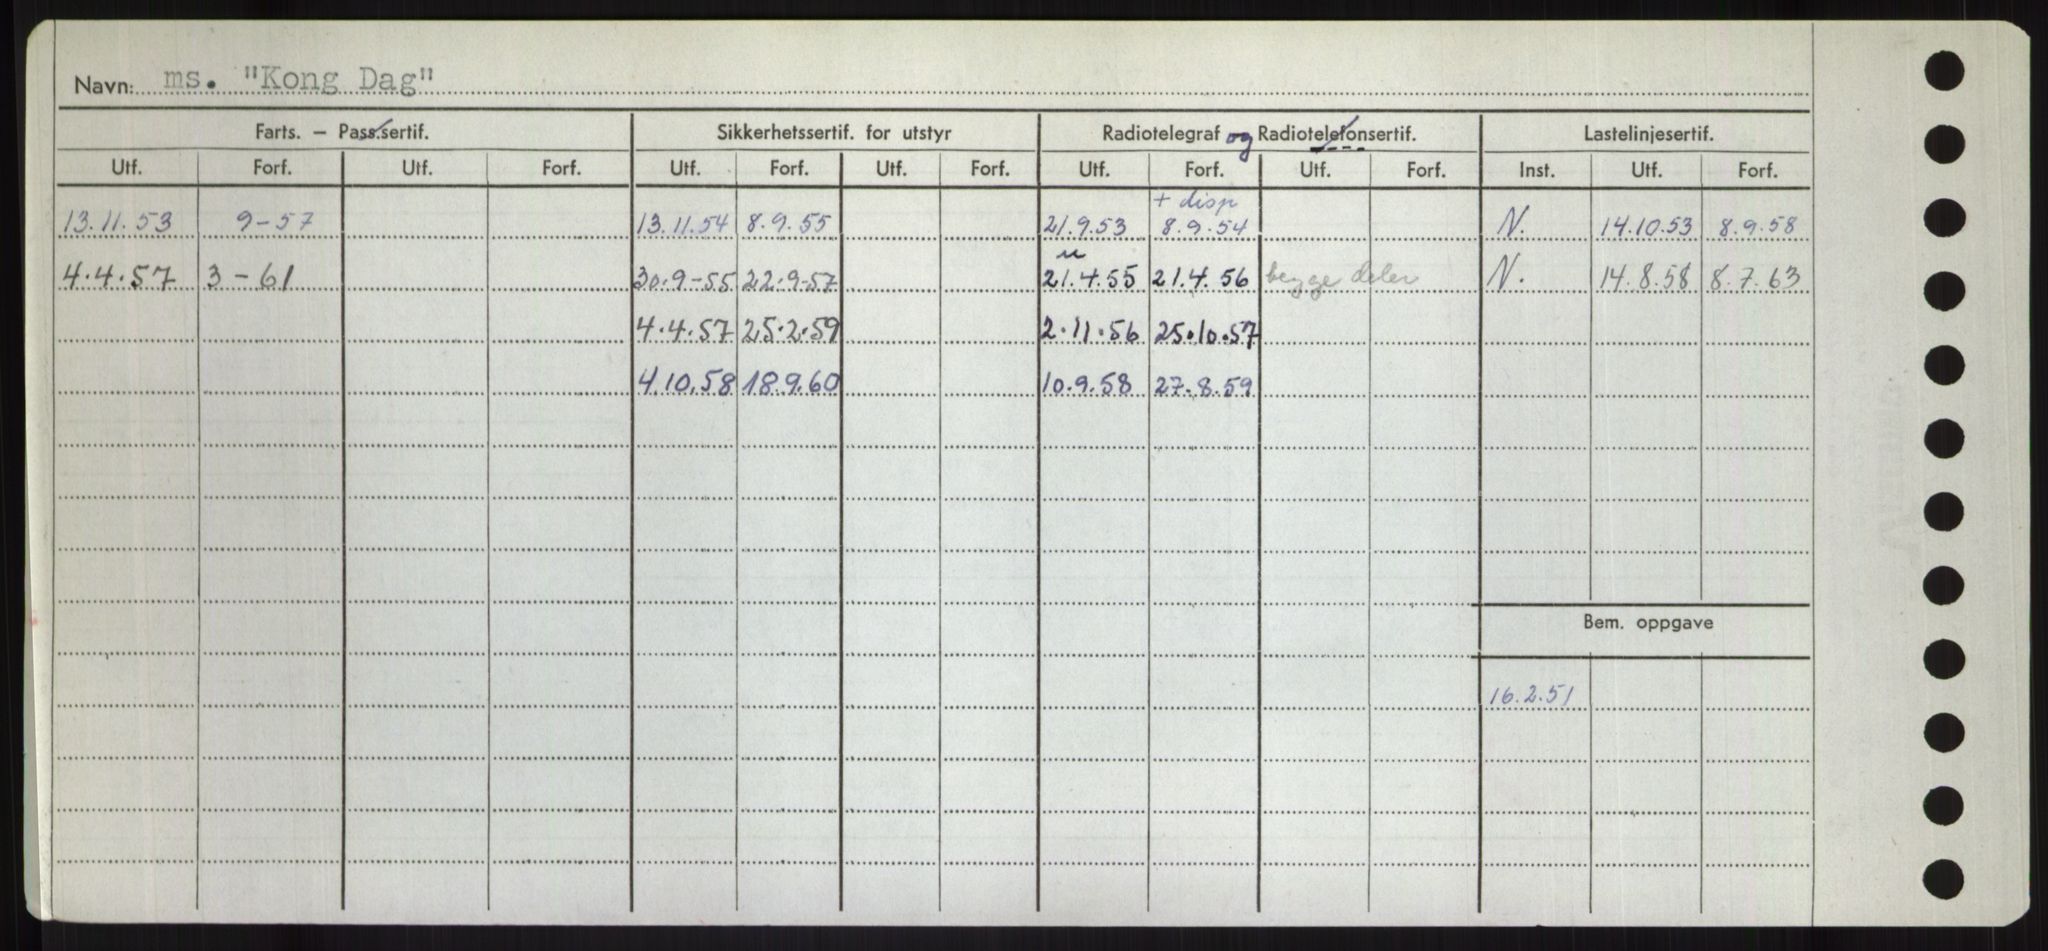 Navn: ms. "Kong Dag"
Farts. – Pass.sertif. Sikkerhetssertif. for utstyr Radiotelegraf og Radiotelefonsertif. Lastelinjesertif.
Utf. Forf. Utf. Forf. Utf. Forf. Utf. Forf. Utf. Forf. Utf. Forf. Inst. Utf. Forf.
+ disp
13.11.53 9-57 13.11.54 8.9.55 21.9.53 8.9.54 N. 14.10.53 8.9.58
u
4.4.57 3-61 30.9-55 22.9-57 21.4.55 21.4.56 begge deler N. 14.8.58 8.7.63
4.4.57 25.2.59 2.11.56 25.10.57
4.10.58 18.9.60 10.9.58 27.8.59
Bem. oppgave
16.2.51